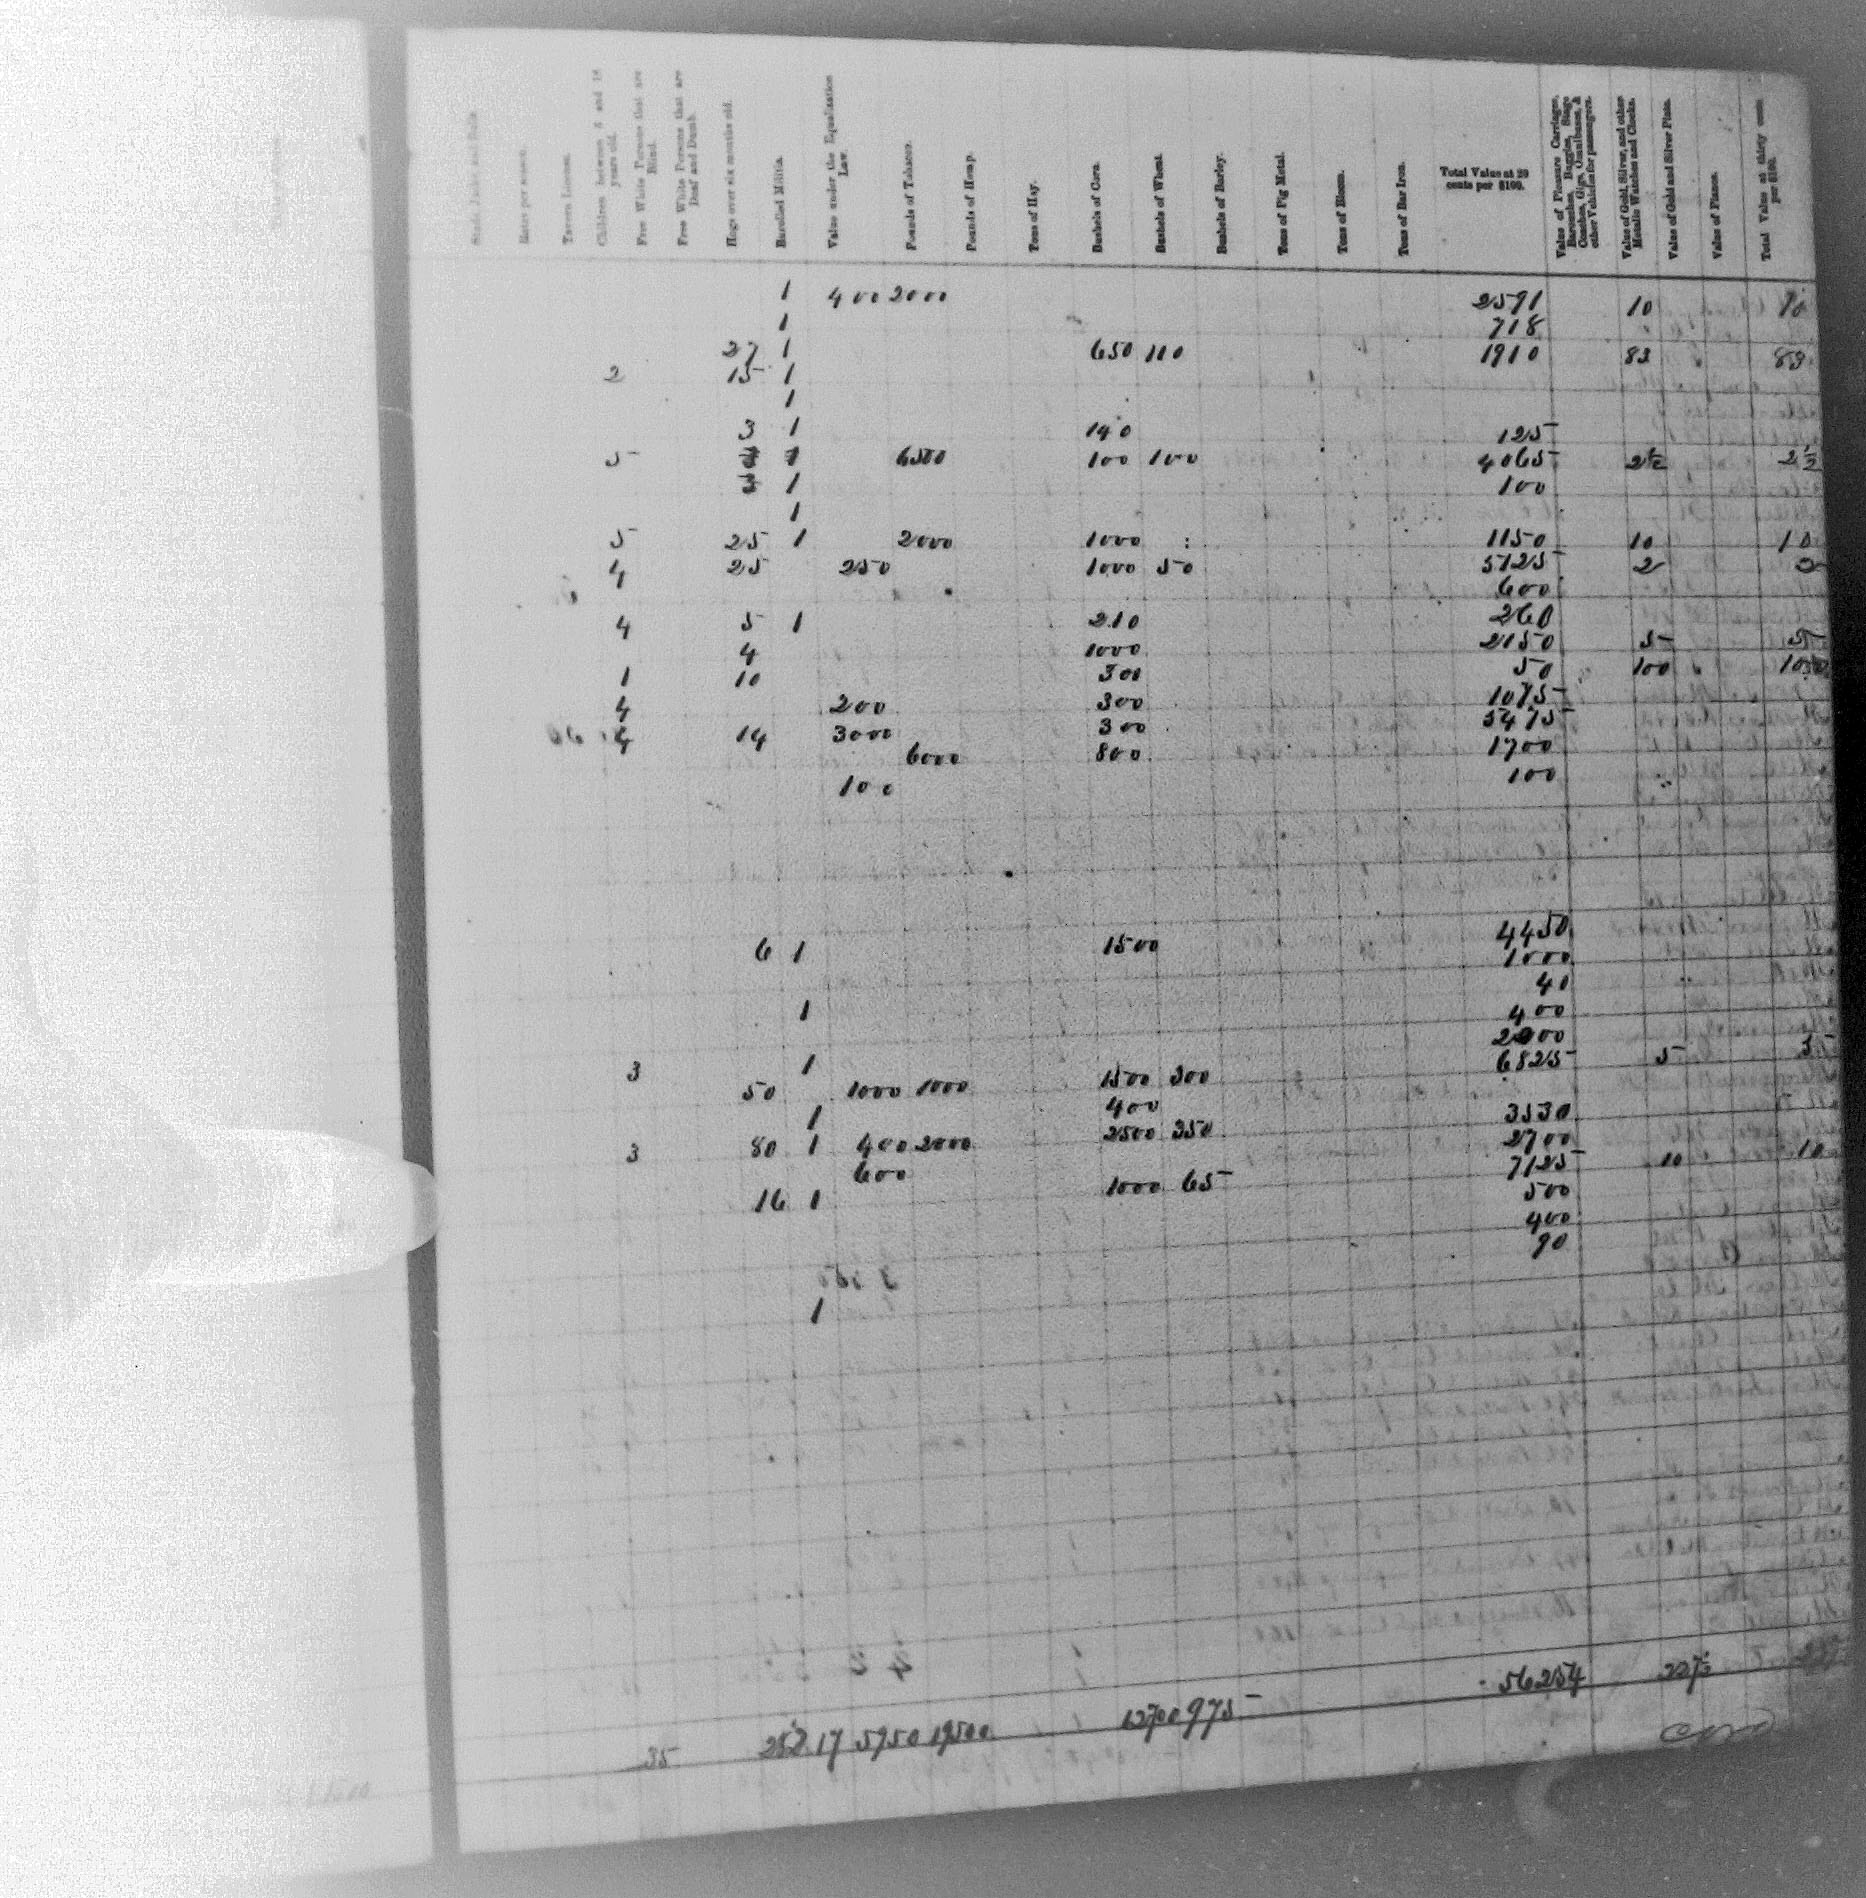 Tavern License.
Children between 6 and 18 years old.
Free White Persons that are Blind.
Free White Persons that are Deaf and Dumb.
Hogs over six months old.
Enrolled Militia.
Value under the Equalization Law.
Pounds of Tobacco.
Pounds of Hemp.
Tons of Hay.
Bushels of Corn.
Bushels of Wheat.
Bushels of Barley.
Tons of Pig Metal.
Tons of Bloom.
Tons of Bar Iron.
Total Value at 20 cents per $100.
Value of Pleasure Carriages, Barouches, Buggies, Stage Coaches, Gigs, Omnibusses, & other Vehicles for passengers.
Value of Gold, Silver, and other Metalic Watches and Clocks.
Value of Gold and Silver Plate.
Value of Pianos.
Total Value at thirty cents per $100.
1 400 2000 2591 10 10
1 718
27 1 650 110 1910 83 83
2 15 1
1
3 1 140 125
5 1 6500 100 100 4065 2½ 2½
1 100
1
5 25 1 2000 1000 1150 10 10
4 25 250 1000 50 5125 2 2
600
4 5 1 210 260
4 1000 2150 5 5
1 10 300 50 100 100
4 200 300 1075
4 14 3000 300 5475
6000 800 1700
100 100
4450
6 1 1500 1000
40
1 400
2000
3 1 6825 5 5
50 1000 1000 1500 300
1 400 3530
3 80 1 400 2000 2500 350 2700
600 7125 10 10
16 1 1000 65 500
400
90
1
35 282 17 5950 19500 12700 975 56254 227½